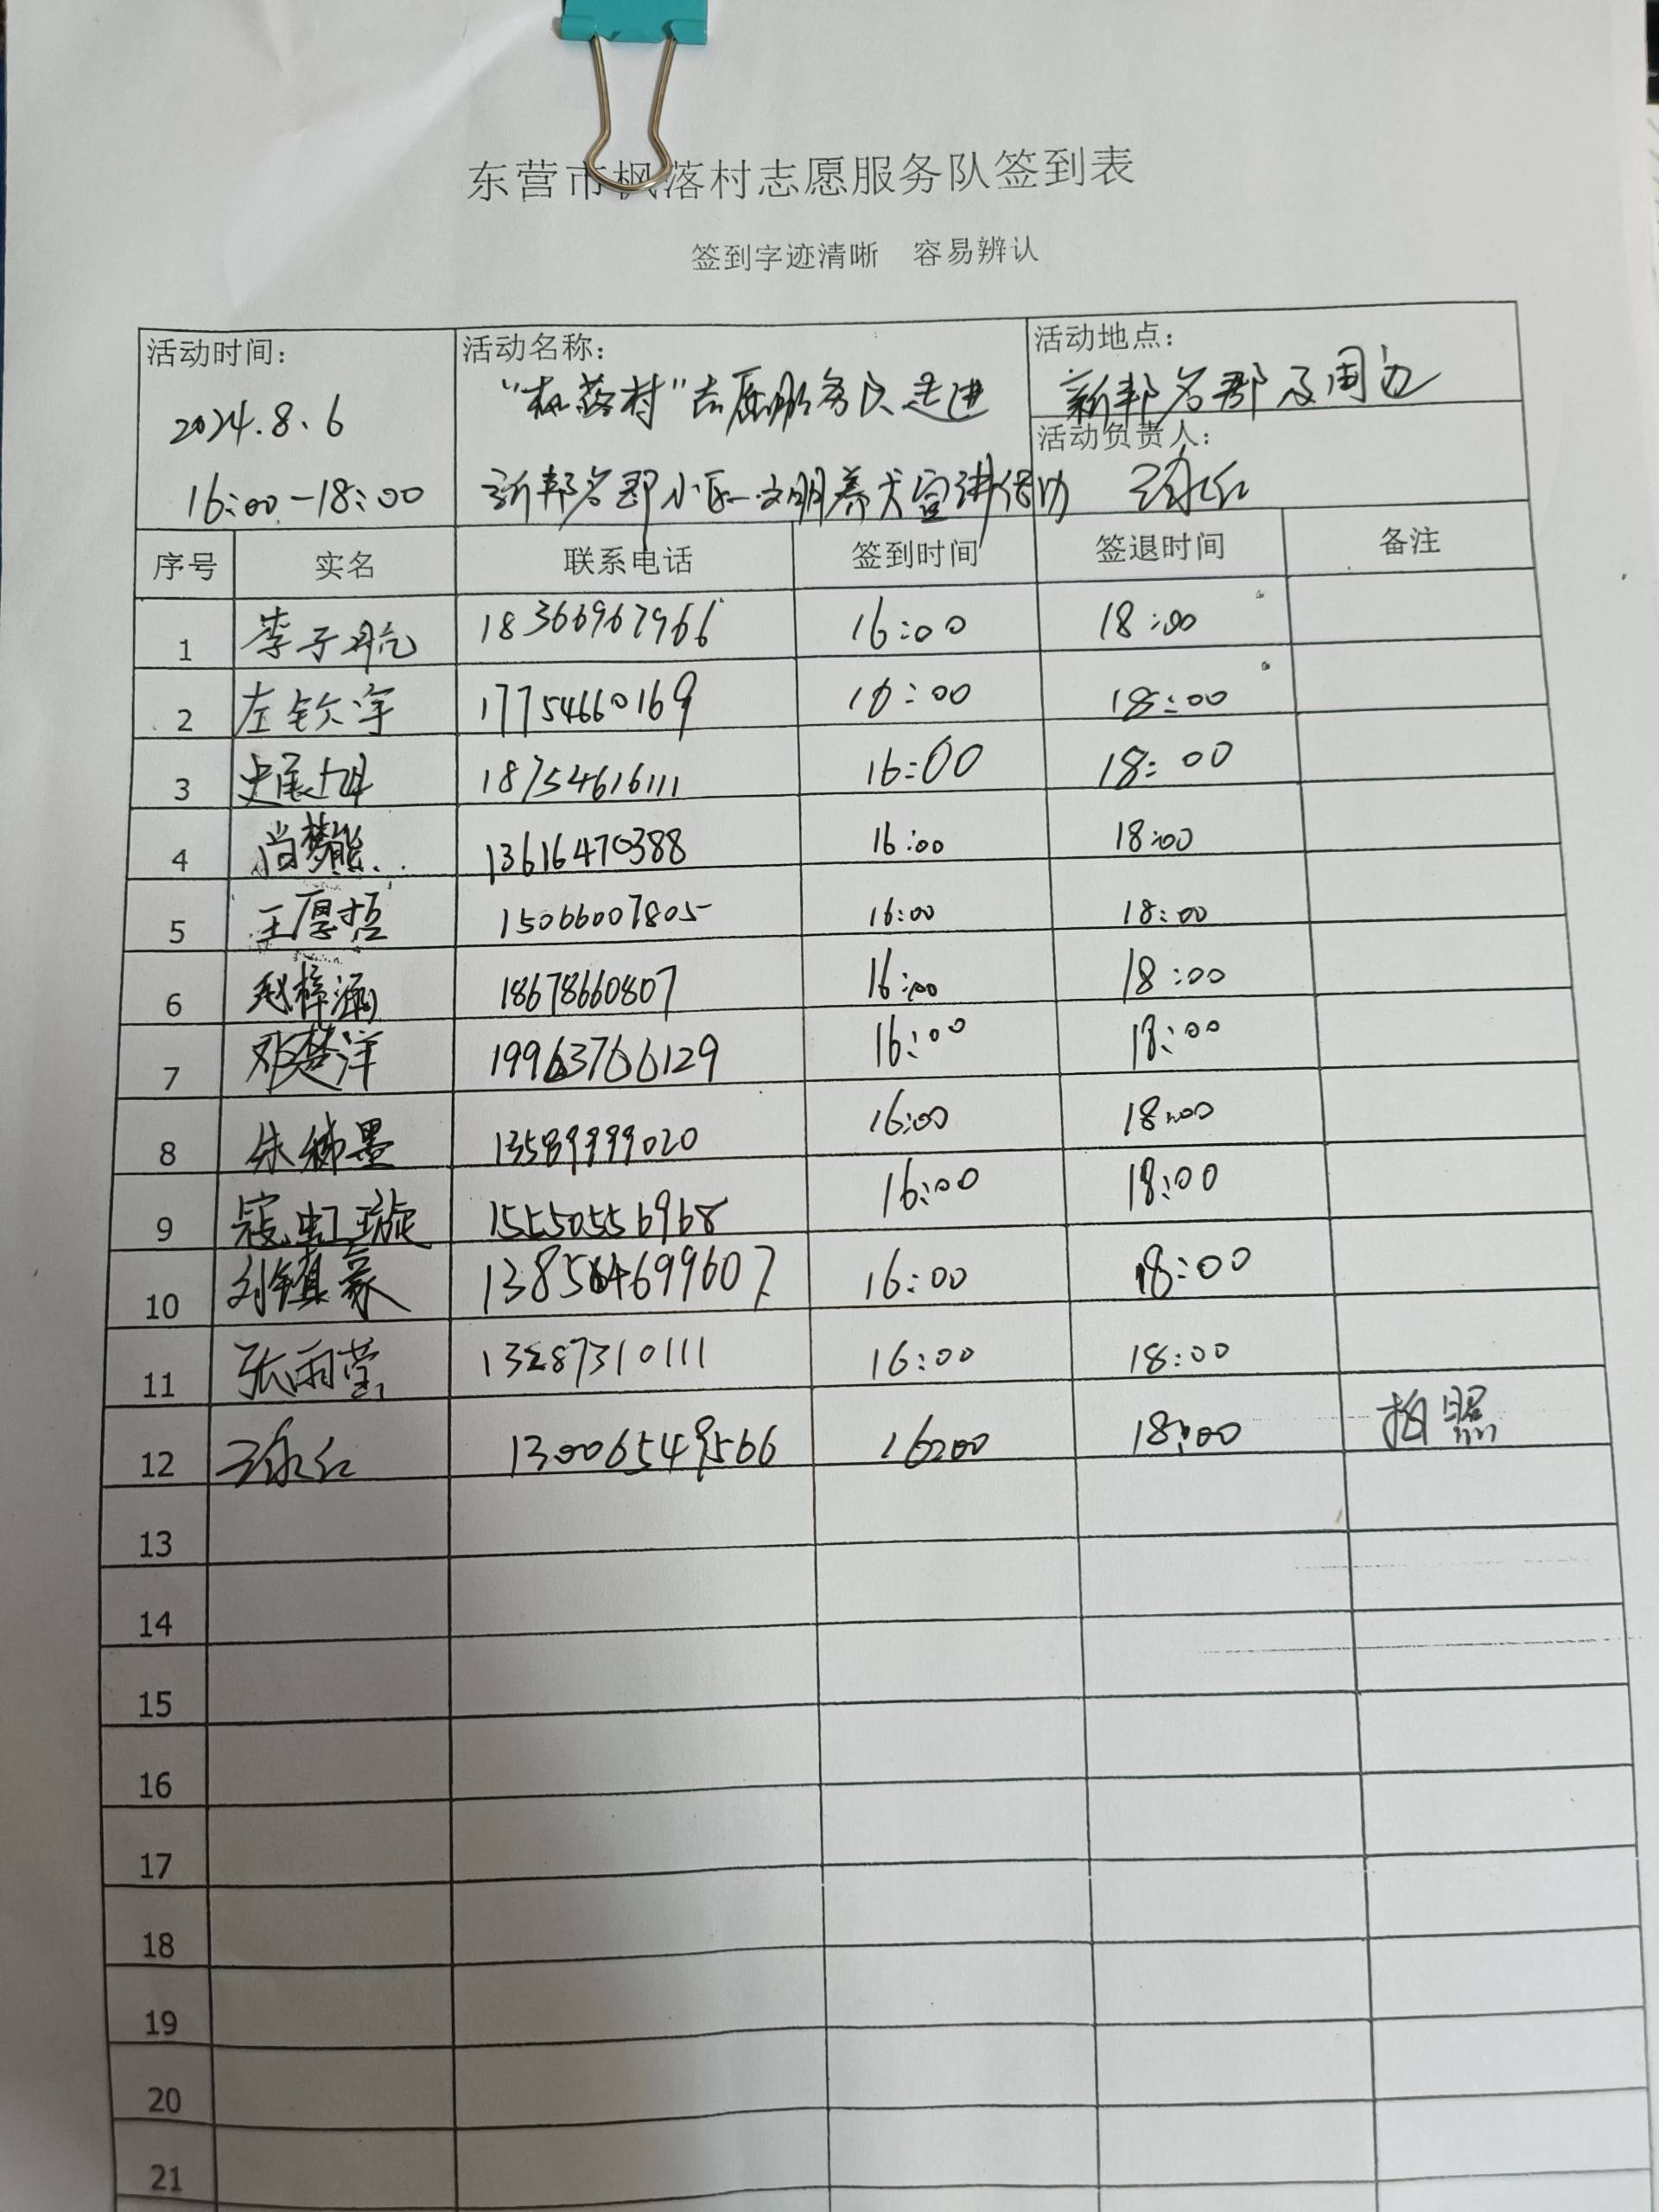 东营市枫落村志愿服务队签到表
签到字迹清晰 容易辨认
活动时间：
2024.8.6
16:00-18:00
活动名称：
“枫落村”志愿服务队走进
新邦名郡小区—文明养犬宣讲活动
活动地点：
新邦名郡及周边
活动负责人：
序号 实名 联系电话 签到时间 签退时间 备注
1 李子航 18366967966 16:00 18:00
2 左钦宇 17754660169 16:00 18:00
3 史展 18754616111 16:00 18:00
4 尚梦熊 13616470388 16:00 18:00
5 王厚哲 15066007805 16:00 18:00
6 赵梓涵 18678660807 16:00 18:00
7 邓楚洋 19963766129 16:00 18:00
8 朱 墨 13589999020 16:00 18:00
9 寇虹璇 15550556968 16:00 18:00
10 刘镇豪 16:00 18:00
11 张雨莹 13287310111 16:00 18:00
12 13006549566 16:00 18:00 拍照
13
14
15
16
17
18
19
20
21